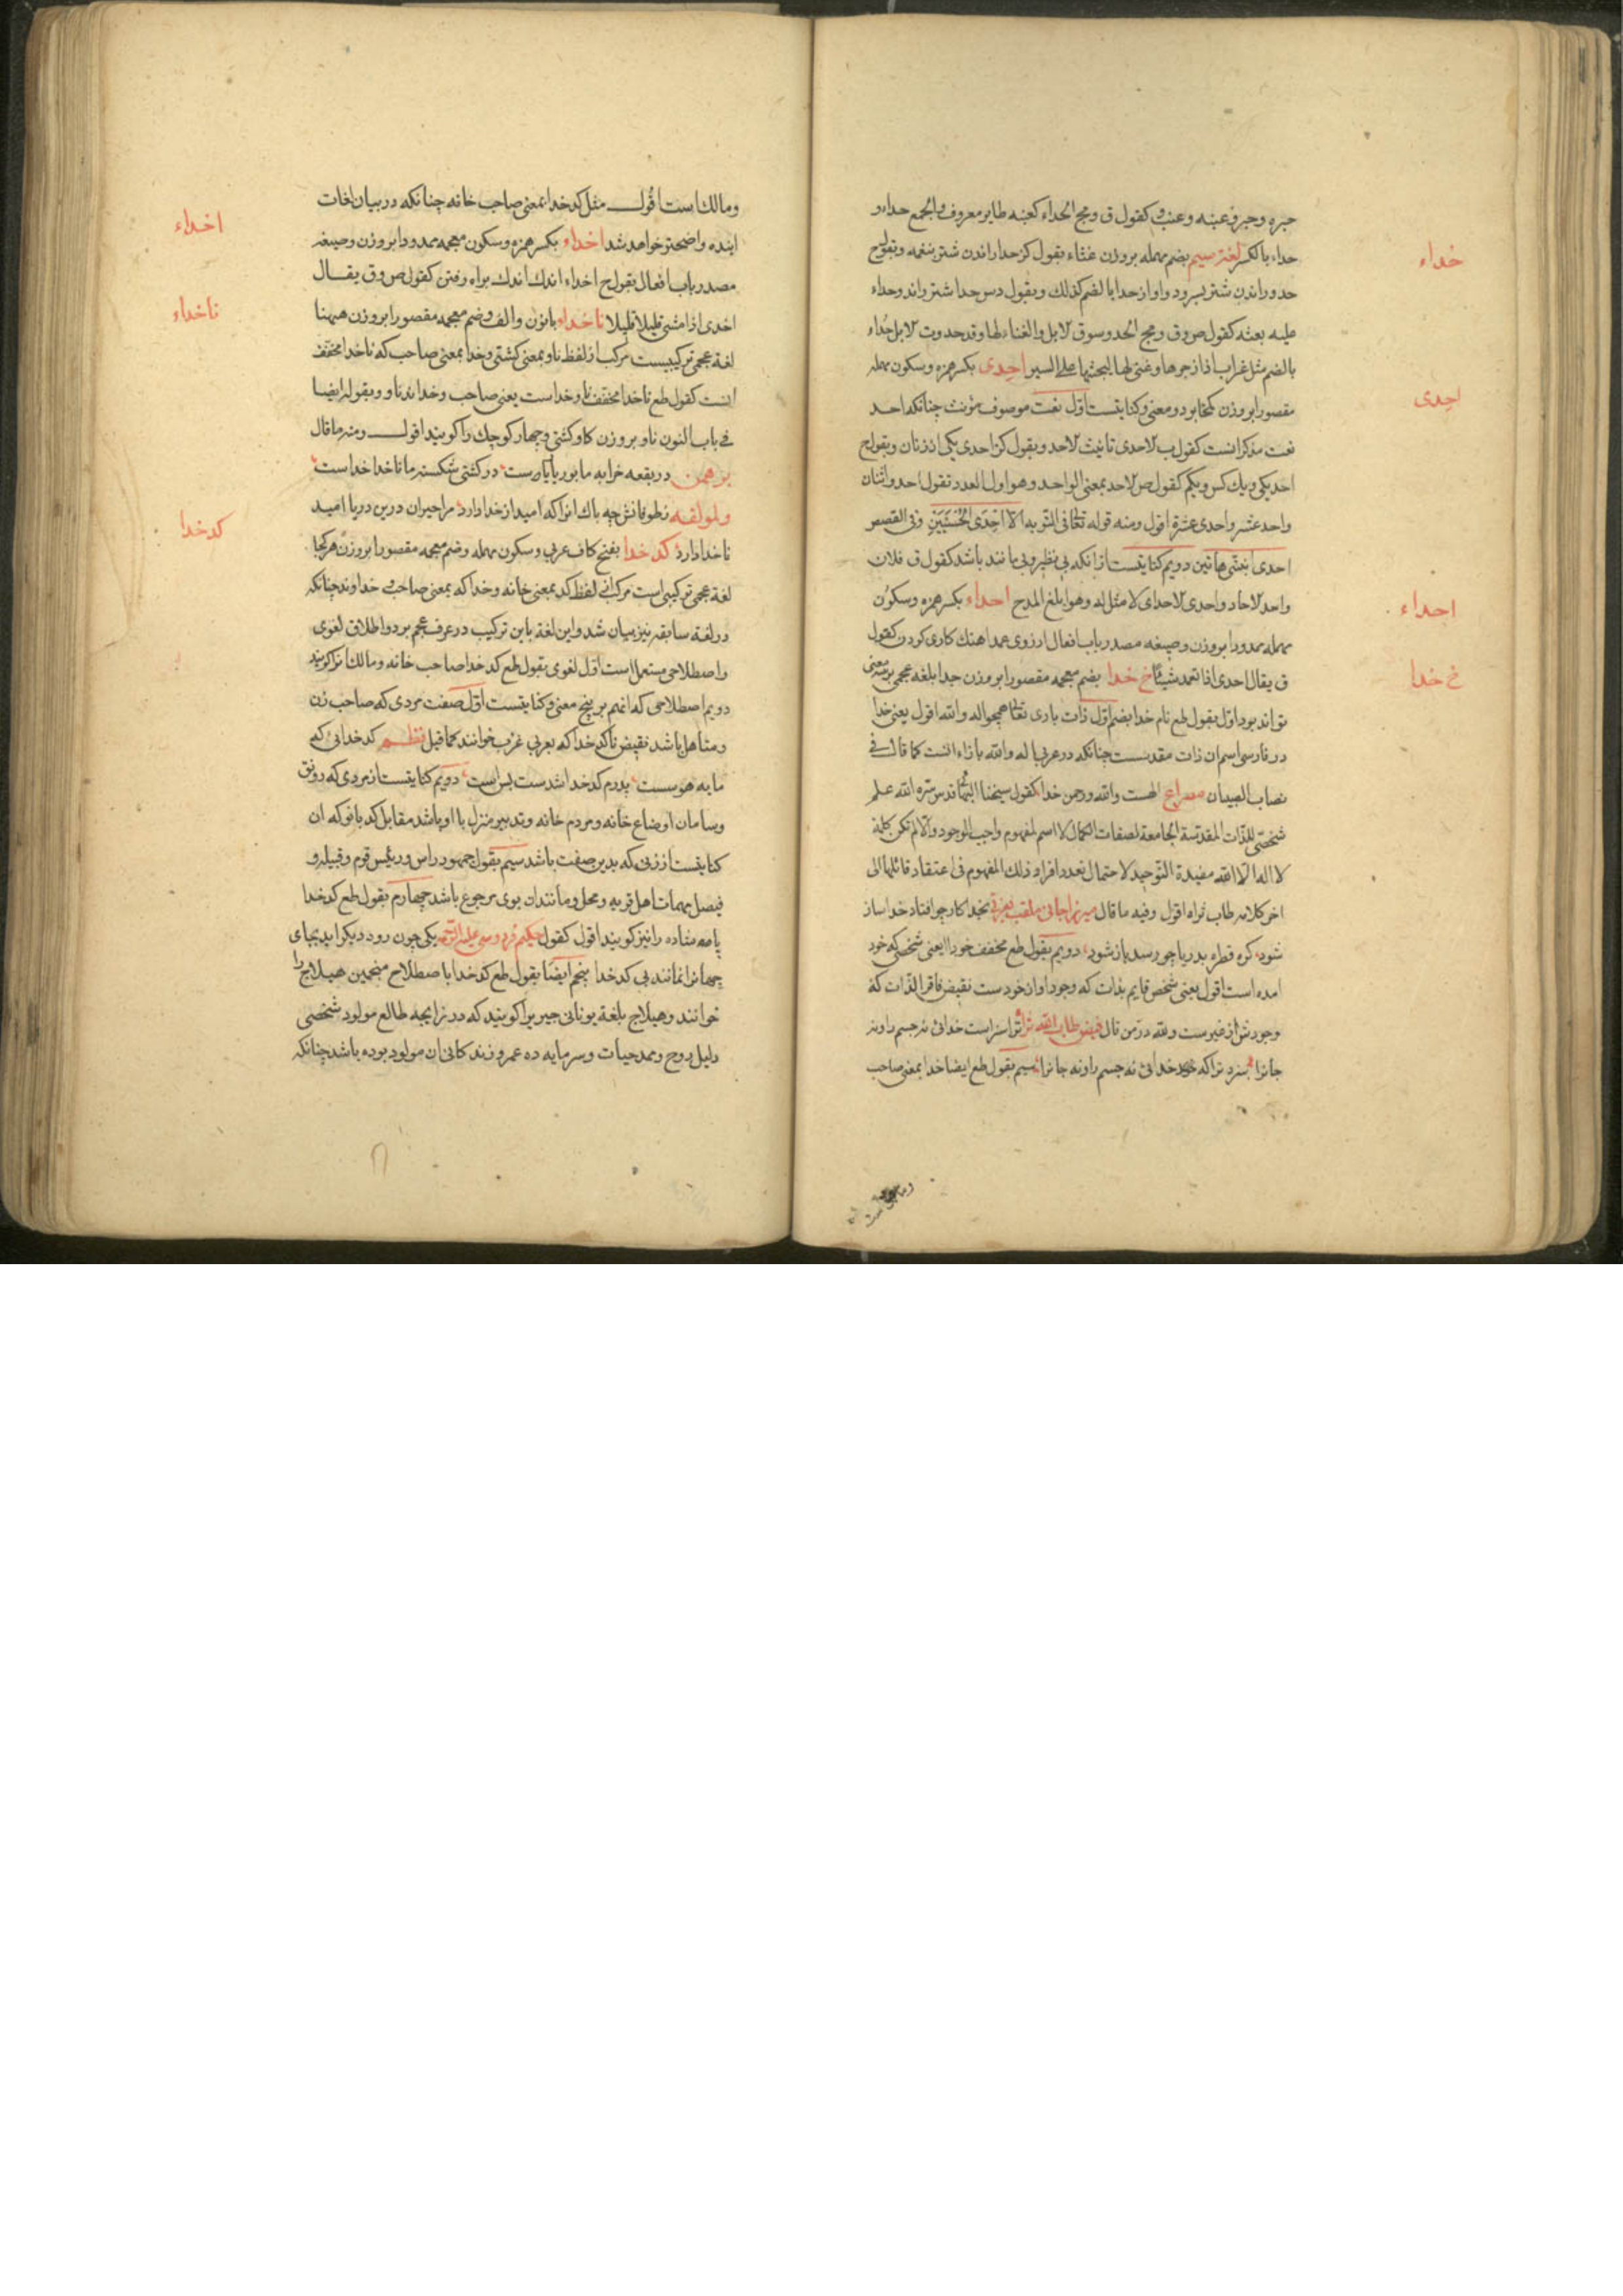 حبره و حبر و عنبه و عنب کقول ق و مج الحداء کعنبه طایر معروف و الجمع حداء و
حداء بالکسر لغة سیم بضم مهمله بر وزن غثاء بقول کز حدا راندن شتر بنغمه و بقول ح
حدو راندن شتر بسرود و آواز حدا بالضم کذلک و بقول دس حدا شتر راند و حداء
علیه بعثه کقول ص و ق و مج الحدو سوق الابل و الغناء لها و قد حدوت الابل حداء
بالضم مثل غراب اذا زجرها و غنی لها لیحثها علی السیر احدی بکسر همزه و سکون مهمله
مقصورا بر وزن کخابر دو معنی و کنایتست اول نعت موصوف مؤنث چنانکه احد
نعت مذکرانست کقول ب الاحدی تانیث الاحد و بقول کز احدی یکی از زنان و بقول ح
احد یکی و یک کس و یکم کقول ص الاحد بمعنی الواحد و هو اول العدد تقول احد و اثنان
واحد عشر و احدی عشرة اقول و منه قوله تعالی فی التوبه الا احدی الحسنیین و فی القصص
احدی ابنتی هاتین دویم کنایتست از آنکه بی نظیر و بی مانند باشد کقول ق فلان
واحد الاحاد و احدی الاحد ای لا مثل له و هو ابلغ المدح احداء بکسر همزه و سکون
مهمله ممدودا بر وزن و صیغه مصدر باب افعال ارزوی عمد اهنک کاری کردن کقول
ق یقال احدی اذا تعمد شیئا خ خدا بضم معجمه مقصورا بر وزن جدا بلغه عجمی بر سه معنی
تواند بود اول بقول طع نام خدا بضم اول ذات باری تعالی همچو اله و الله اقول یعنی خدا
در فارسی اسم ان ذات مقدست چنانکه در عربی اله و الله بازاء انست کما قال فی
نصاب الصبیان مصراع الهست و الله و رحمن خدا کقول شیخنا البهائی قدس سره الله علم
شخصی للذات المقدسة الجامعة لصفات الکمال لا اسم لمفهوم واجب الوجود و الا لم تکن کلمة
لا اله الا الله مفیدة التوحید لاحتمال تعدد افراد ذلک المفهوم فی اعتقاد قائلها الی
اخر کلامه طاب ثراه اقول و فیه ما قال میرزا جانی ملقب بعزتی بخدا کار چو افتاد خدا ساز
شود کره قطره بدریا چو رسد باز شود دویم بقول طع مخفف خود ا یعنی شخصی که خود
امده است اقول یعنی شخص قایم بذات که وجود او از خودست نقیض فاقر الذات که
وجودش از غیرست و لله در من قال فیض طاب الله ثراه ترا سزاست خدائی نه جسم را و نه
جانرا سزد ترا که خود خدائی نه جسم را و نه جانرا سیم بقول طع ایضا خدا بمعنی صاحب
خداء
احدی
احداء
خ خدا
و مالک است
و مالک است اقول مثل کدخدا بمعنی صاحب خانه چنانکه در بیان لغات
اینده واضحتر خواهد شد اخداء بکسر همزه و سکون معجمه ممدودا بر وزن و صیغه
مصدر باب افعال بقول ح اخداء اندک اندک براه رفتن کقول ص و ق یقال
اخدی اذا مشی قلیلا قلیلا ناخداء بانون و الف و ضم معجمه مقصورا بر وزن همینا
لغة عجمی ترکیبیست مرکب از لفظ ناو بمعنی کشتی و خدا بمعنی صاحب که ناخدا مخفف
انست کقول طع ناخدا مخفف ناو خداست یعنی صاحب و خداوند ناو و بقوله ایضا
فی باب النون ناو بر وزن کاو کشتی و جهاز کوچک را کویند اقول و منه ما قال
برهمن در بقعه خرابه ما بوریا بارست در کشتی شکسته ما ناخدا خداست
و لمولفه ز طوفانش چه باک انرا که امید از خدا دارد مرا حیران درین دریا امید
ناخدا دارد کدخدا بفتح کاف عربی و سکون مهمله و ضم معجمه مقصورا بر وزن هر کجا
لغة عجمی ترکیبی است مرکب از لفظ کد بمعنی خانه و خدا که بمعنی صاحب و خداوند چنانکه
در لغة سابقه نیز بیان شد و این لغة باین ترکیب در عرف عجم بر دو اطلاق لغوی
و اصطلاحی مستعمل است اول لغوی بقول طع کدخدا صاحب خانه و مالک انرا کویند
دویم اصطلاحی که انهم بر پنج معنی و کنایتست اول صفت مردی که صاحب زن
و متاهل باشد نقیض ناکدخدا که بعربی عزب خوانند کما قیل نظم کدخدائی که
مایه هوسست پدرم کدخدا شدست بس است دویم کنایتست از مردی که رونق
و سامان اوضاع خانه و مردم خانه و تدبیر منزل با او باشد مقابل کدبانو که ان
کنایتست از زنی که بدین صفت باشد سیم بقول جمهور راس و رئیس قوم و قبیله و
فیصل مهمات اهل قریه و محل و مانند ان بوی مرجوع باشد چهارم بقول طع کدخدا
پادشاه را نیز کویند اقول کقول حکیم فردوسی علیه الرحمه یکی چون رود دیکر اید بجای
جهانرا نمانند بی کدخدا پنجم ایضا بقول طع کدخدا باصطلاح منجمین هیلاج را
خوانند و هیلاج بلغة یونانی چیزیرا کویند که در زایجه طالع مولود شخصی
دلیل روح و ممد حیات و سرمایه ده عمر و زندکانی ان مولود بوده باشد چنانکه
اخداء
ناخداء
کدخدا